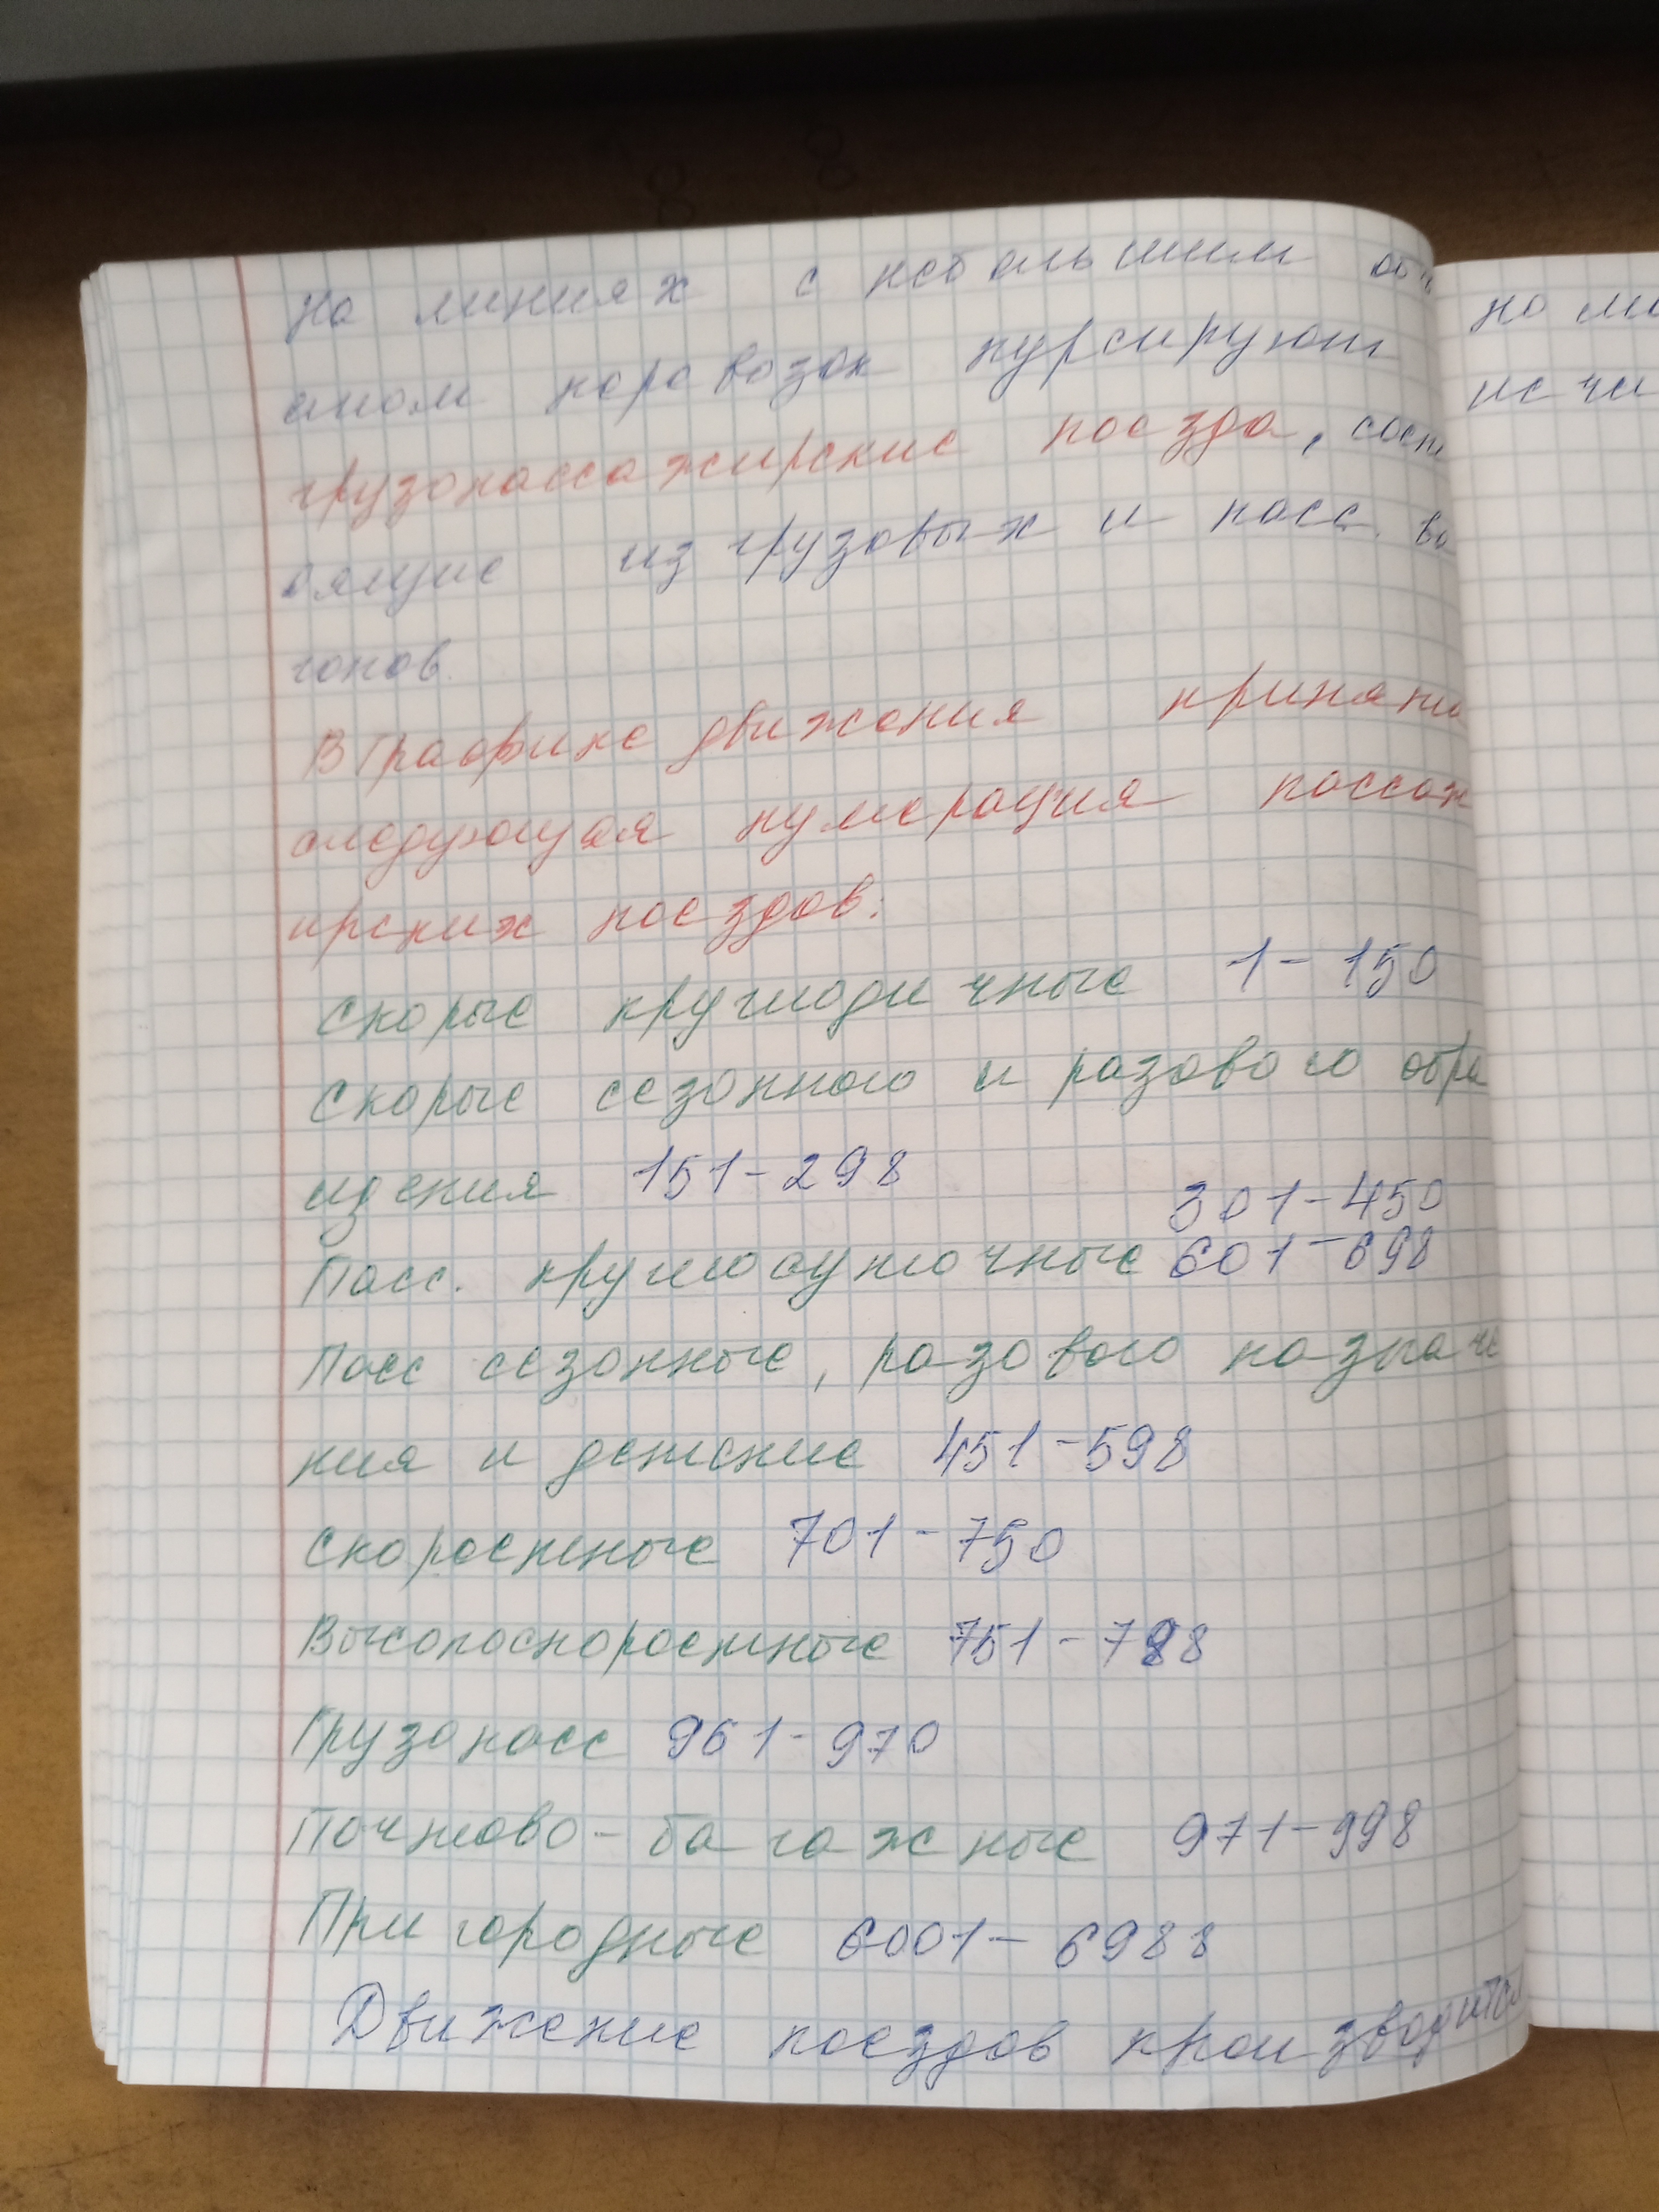 на линиях с небольшим объ
емом перевозок курсируют
грузопассажирские поезда, сост
оящие из грузовых и пасс. ва
гонов.
В графике движения принята
следующая нумерация пассаж
ирских поездов:
Скорые круглогодичные 1-150
Скорые сезонного и разового обра
щения 151-298
301-450
Пасс. круглосуточные 601-698
Пасс сезонные, разового назначе
ния и детские 451-598
Скоростные 701-750
Высокоскоростные 751-788
Грузопасс 961-970
Почтово-багажные 971-998
Пригородные 6001-6988
Движение поездов производится